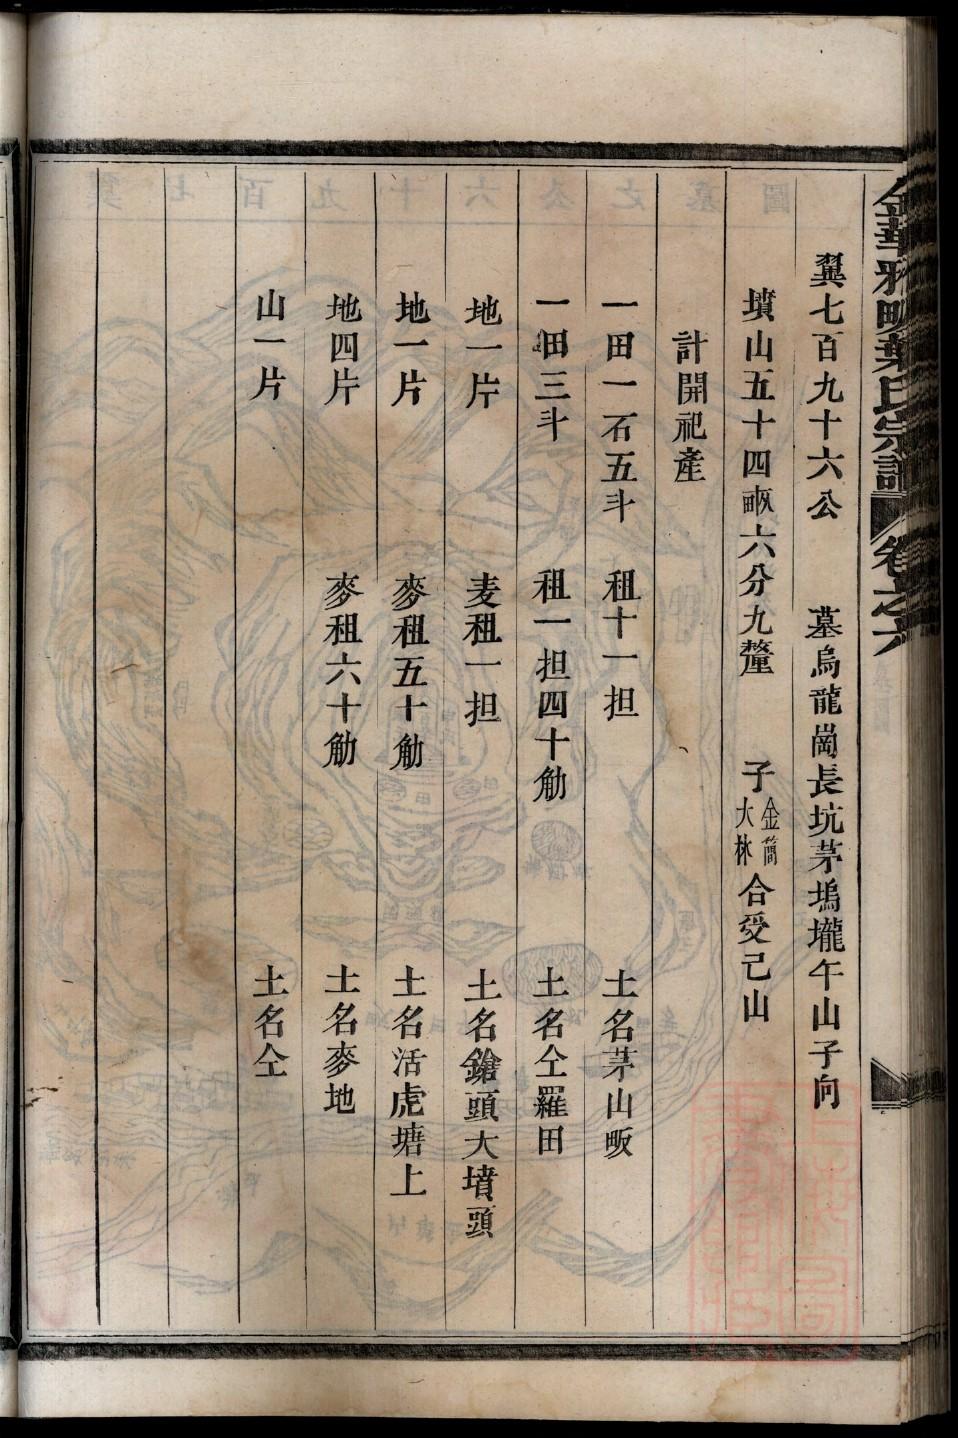 金華雅畈葉氏宗譜 卷之六
翼七百九十六公 墓烏龍崗長坑茅塢壠午山子向
墳山五十四畝六分九釐 子金簡大林合受己山
計開祀產
一田一石五斗 租十一担 土名茅山畈
一田三斗 租一担四十觔 土名仝羅田
地一片 麦租一担 土名鎗頭大墳頭
地一片 麥租五十觔 土名活虎塘上
地四片 麥租六十觔 土名麥地
山一片 土名仝